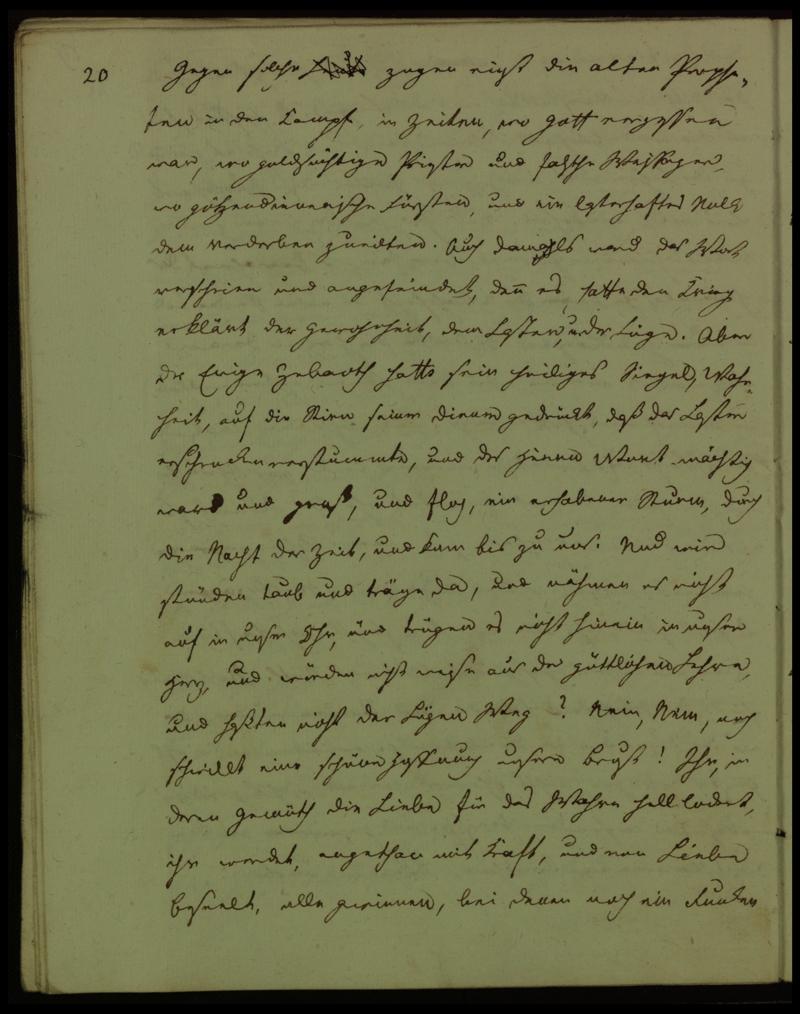 20
Gegen solche zogen einst die alten Prophe-
ten in den Kampf, in Zeiten, wo Gott vergessen
war, wo goldsüchtige Priester und falsche Weissager,
wo götzendienerische Fürsten, und ein lasterhaftes Volk
dem Verderben zueilten. Auch damals ward das Wort
verschrien und angefeindet, denn es hatte den Krieg
erklärt der Gewohnheit, dem Laster, u. der Lüge. Aber
der Ewige Zebaoth hatte sein heiliges Siegel, Wahr-
heit, auf die Stirn seiner Diener gedrückt, daß das Laster
erschrocken verstummte, und des Herrn Wort mächtig
ward und groß, und flog, ein erhabener Sturm, durch
die Nacht der Zeit, und kam bis zu uns. Und wir
stünden taub und träge da, und nähmen es nicht
auf in unser Ohr, und trügen es nicht hinein in unser
Herz, und würden nicht weise aus der göttlichen Lehre,
und haßten nicht der Lügen Weg? Nein, Nein, noch
schwellt eine schöne Hoffnung unsere Brust! Ihr, in
deren Gemüth die Liebe für das Wahre hell lodert,
ihr werdet, angethan mit Kraft, und von Liebe
beseelt, alle gewinnen, bei denen noch ein Funken